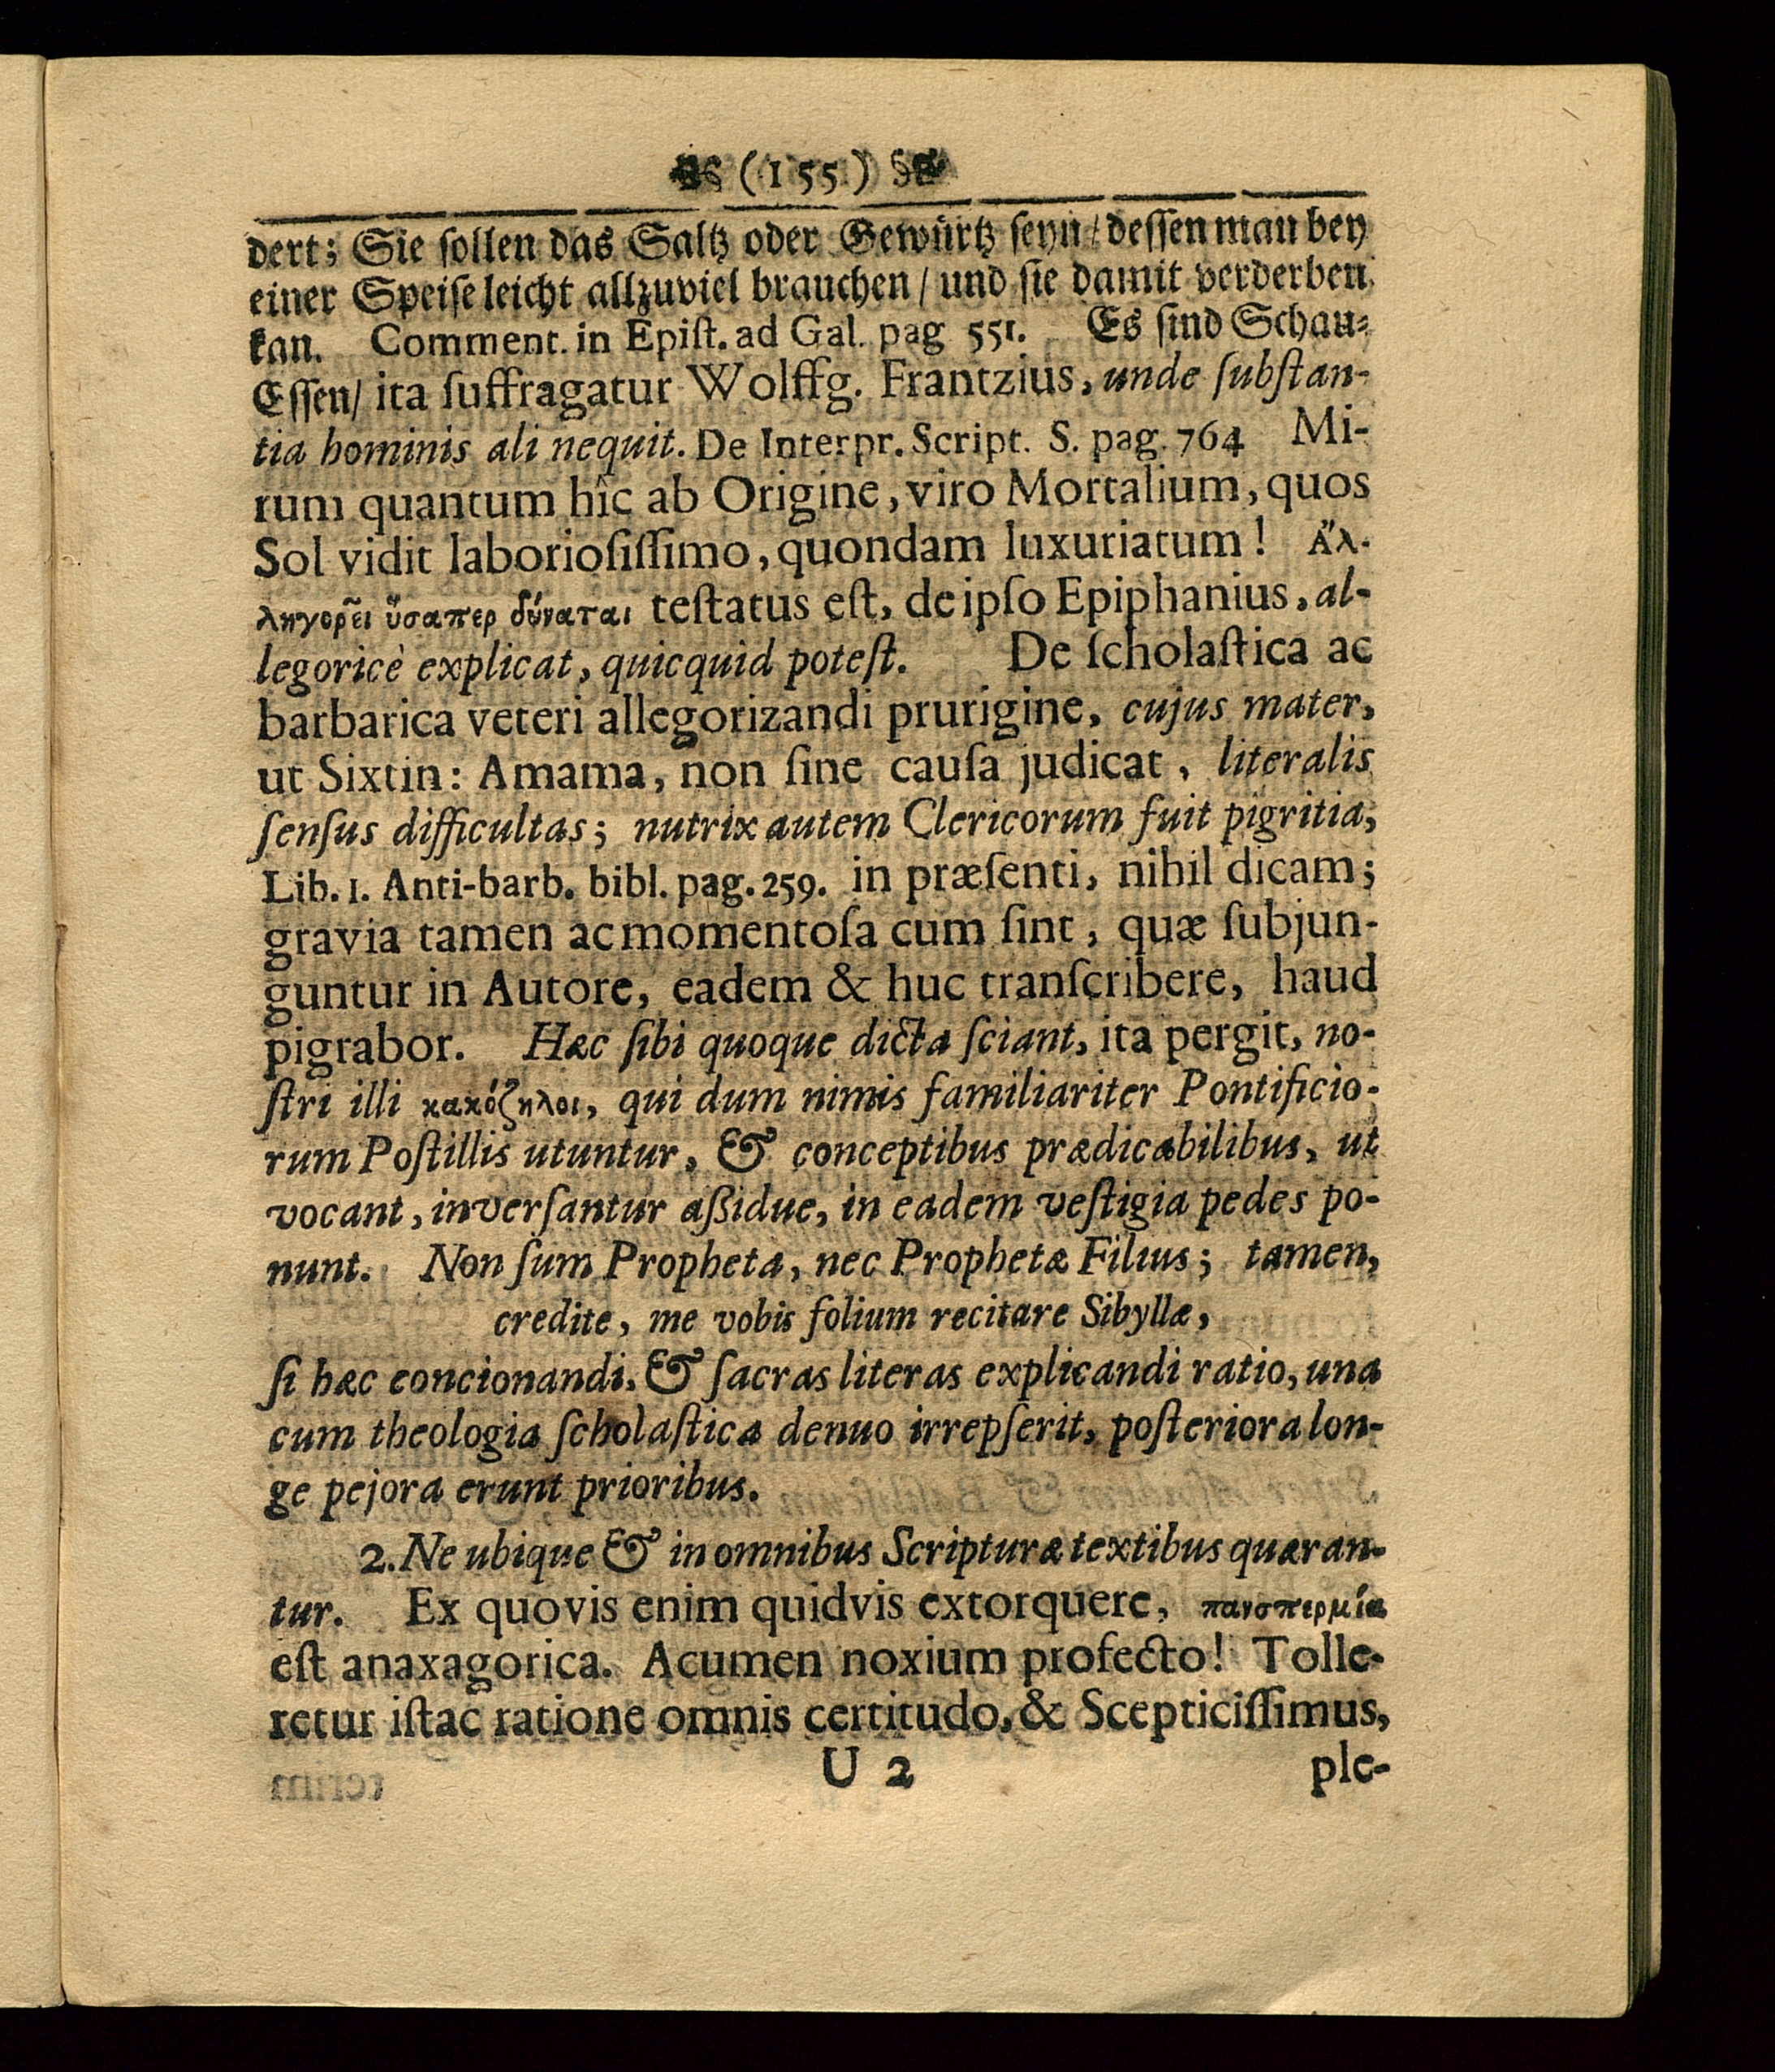 (155)
dert; Sie ſollen das Saltz oder Gewürtz ſeyn / deſſen man bey
einer Speiſe leicht allzuviel brauchen / und ſie damit verderben
kan. Comment. in Epiſt. ad Gal. pag 551. Es ſind Schau-
Eſſen / ita ſuffragatur Wolffg. Frantzius, unde ſubſtan-
tia hominis ali nequit. De Interpr. Script. S. pag. 764 Mi-
rum quantum hîc ab Origine, viro Mortalium, quos
Sol vidit laborioſiſſimo, quondam luxuriatum! Ἄλ-
ληγορεῖ ὅσαπερ δύναται teſtatus eſt, de ipſo Epiphanius, al-
legoricè explicat, quicquid poteſt. De ſcholaſtica ac
barbarica veteri allegorizandi prurigine, cujus mater,
ut Sixtin: Amama, non ſine cauſa judicat, literalis
ſenſus difficultas; nutrix autem Clericorum fuit pigritia,
Lib. 1. Anti-barb. bibl. pag. 259. in præſenti, nihil dicam;
gravia tamen ac momentoſa cum ſint, quæ ſubjun-
guntur in Autore, eadem & huc tranſcribere, haud
pigrabor. Hæc ſibi quoque dicta ſciant, ita pergit, no-
ſtri illi κακόζηλοι, qui dum nimis familiariter Pontificio-
rum Poſtillis utuntur, & conceptibus prædicabilibus, ut
vocant, inverſantur aßidue, in eadem veſtigia pedes po-
nunt. Non ſum Propheta, nec Prophetæ Filius; tamen,
credite, me vobis folium recitare Sibyllæ,
ſi hæc concionandi, & ſacras literas explicandi ratio, una
cum theologia ſcholaſtica denuo irrepſerit, poſteriora lon-
ge pejora erunt prioribus.
2. Ne ubique & in omnibus Scripturæ textibus quæran-
tur. Ex quovis enim quidvis extorquere, πανσπερμία
eſt anaxagorica. Acumen noxium profecto! Tolle-
retur iſtac ratione omnis certitudo, & Scepticiſſimus,
U 2 ple-